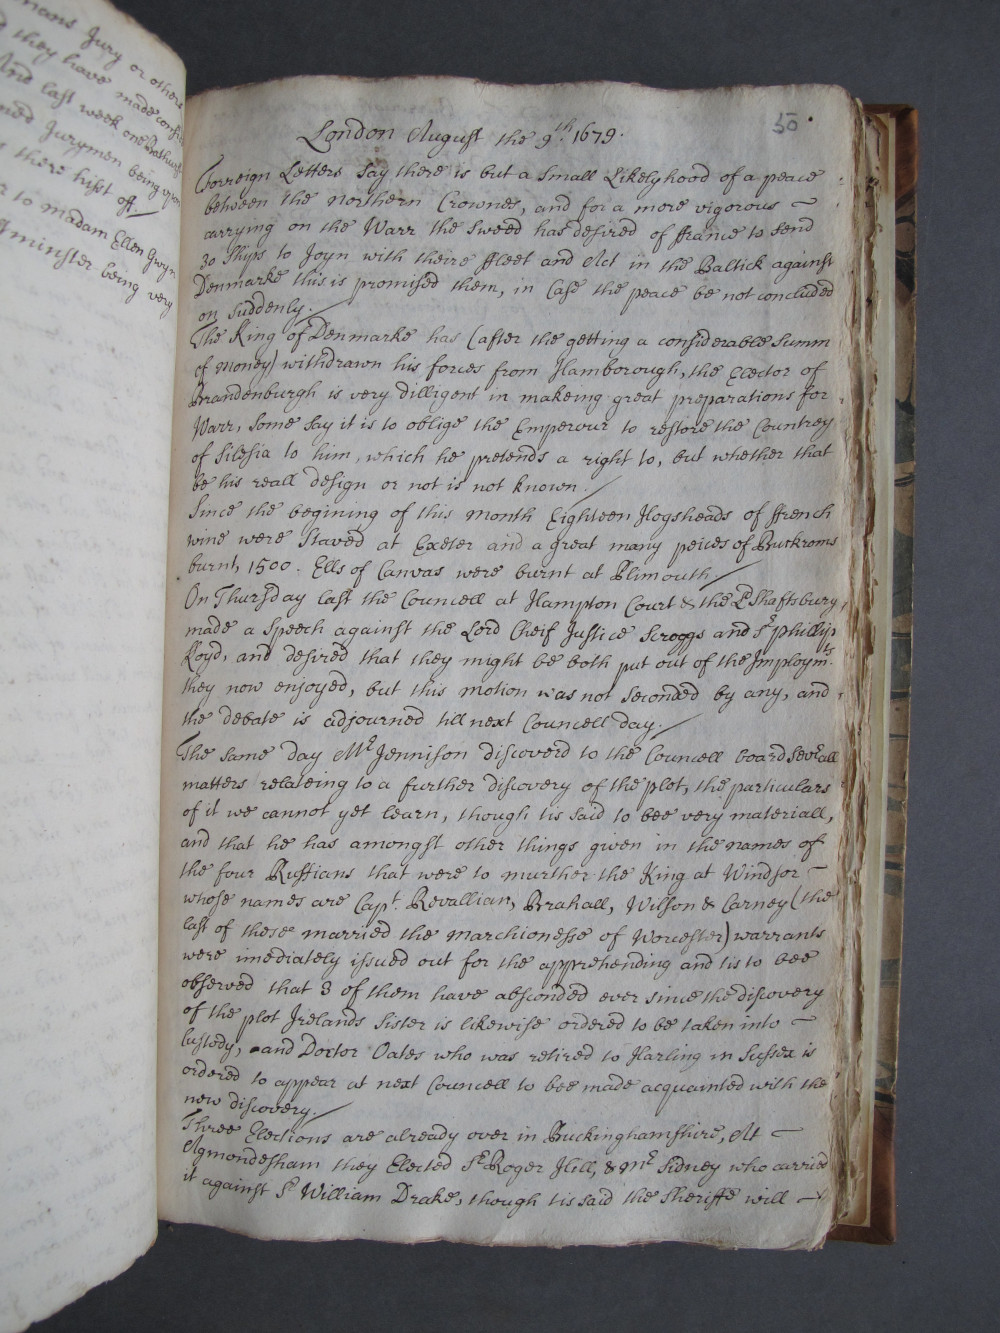 mans Jury or others
they have made
And last week one
Jurymen being upon
there hist off.
to Madam Ellen Gwyn
being very
50
London August the 9th. 1679.
Forreign Letters say there is but a small Likelyhood of a peace
between the northern Crownes, and for a more vigorous
carrying on the Warr the sweed has desired of ffrance to send
30 Ships to Joyn with theire ffleet and Act in the Baltick against
Denmarke this is promised them, in Case the peace be not concluded
on suddenly.
The King of Denmarke has (after the getting a considerable summ
of money) withdrawn his forces from Hamborough, the Elector of
Brandenburgh is very dilligent in makeing great preparations for
Warr, some say it is to oblige the Emperour to restore the Countrey
of Silesia to him, which he pretends a right to, but whether that
be his reall design or not is not known.
Since the begining of this month Eighteen Hogsheads of ffrench
wine were Staved at Exeter and a great many peices of Buckroms
burnt, 1500. Ells of Canvas were burnt at Plimouth.
On Thursday last the Councell at Hampton Court & the Ld Shaftsbury
made a speech against the Lord Cheif Justice Scroggs and Sr. phillip
lloyd, and desired that they might be both put out of the Imploymts.
they now enjoyed, but this motion was not seconded by any, and
the debate is adjourned till next Councell day.
The same day Mr Jennison discoverd to the Councell board severall
matters relateing to a further discovery of the plot, the particulars
of it we cannot yet learn, though tis said to bee very materiall,
and that he has amongst other things given in the names of
the four Ruffians that were to murther the King at Windsor
whose names are Capt. Revallian, Brahall, Wilson & Carney (the
last of these married the Marchionesse of Worcester) warrants
were imediately issued out for the apprehending and tis to bee
observed that 3 of them have absconded ever since the discovery
of the plot Irelands sister is likewise ordered to be taken into
Custody, and Doctor Oates who was retired to Harling in Sussex is
ordered to appear at next Councell to bee made acquainted with the
new discovery.
Three Elections are already over in Buckinghamshire, At
Agmondesham they Elected Sr. Roger Hill, & Mr Sidney who carried
it against Sr William Drake, though tis said the Sheriffe will